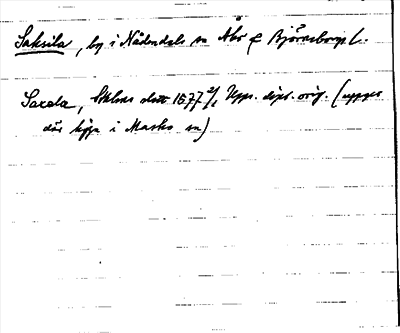 Saksila, by i Nådendals sn Åbo o Björneborgs l.
Saxala, Sthlms slott 1677 2/1 Upps. dipl. orig. (uppges
där ligga i Masko sn)